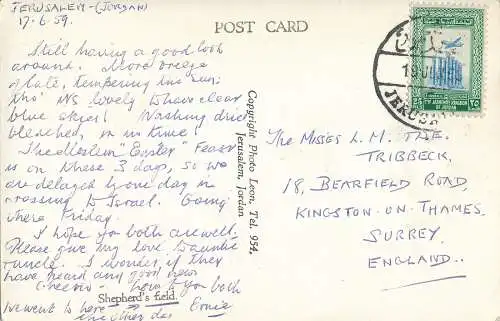 JERUSALEM - (JORDAN)
17.6.59.
POST CARD
Still having a good look
around. More breeze
of late, tempering the sun:
tho' it's lovely to have clear
blue skies! Washing dried
bleached, in no time!
The Moslem "Easter" Feast
is on these 3 days, so we
are delayed by one day in
crossing to Israel. Going
there Friday.
I hope you both are well.
Please give my love to auntie
& uncle. I wonder if they
have heard any good news
Cheerio - love to you both
Ernie
we went to here
the other day
Shepherd's field.
Copyright Photo Leon, Tel. 954,
Jerusalem, Jordan
JERUSA
25
THE HASHEMITE KINGDOM
OF JORDAN
٢٥
THE MISSES L. M.
TRIBBECK,
18, BEARFIELD ROAD,
KINGSTON-ON-THAMES
SURREY.
ENGLAND..